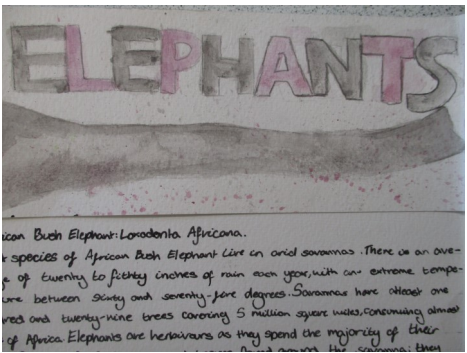 ELEPHANTS
ican Bush Elephant: Loxodonta Africana.
species of African Bush Elephant Live in arid savannas. There is an ave-
e of twenty to fifthty inches of rain each year, with an extreme tempe-
ure between sixty and seventy-five degrees. Savannas have atleast one
red and twenty-nine trees covering 5 million square miles, consuming almost
of Africa. Elephants are herbivours as they spend the majority of their
around the savanna; they